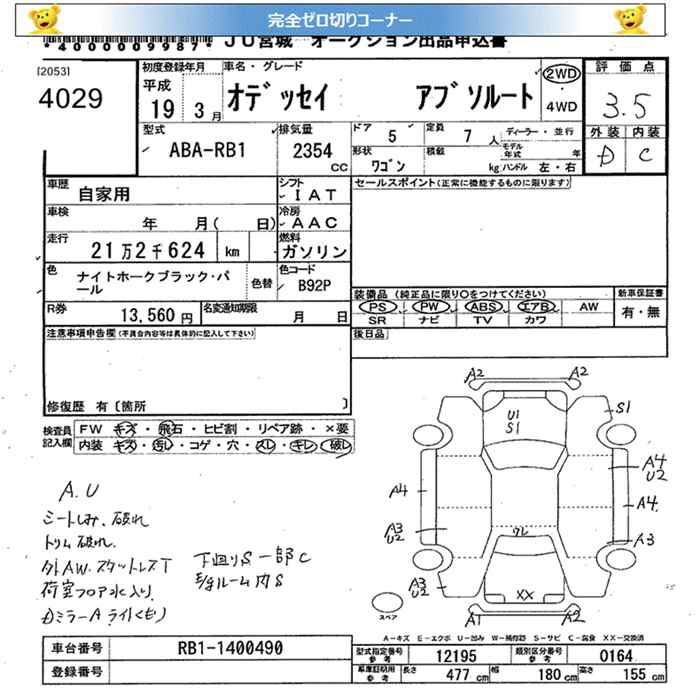 完全ゼロ切りコーナー
*4000009987* JU宮城 オークション出品申込書
[2053]
4029
初度登録年月
平成
19 3月
車名・グレード
オデッセイ アブソルート
2WD
4WD
評価点
3.5
外装 内装
D C
型式
ABA-RB1
排気量
2354
CC
ドア 5
定員 7 人
ディーラー・並行
モデル年式 年
形状 ワゴン
積載 kg
ハンドル 左・右
車歴 自家用
シフト IAT
セールスポイント(正常に機能するものに限ります)
車検 年 月( 日)
冷房 AAC
走行 21万2千624 km
燃料 ガソリン
色 ナイトホークブラック・パール
色替
色コード B92P
装備品(純正品に限り○をつけてください)
PS PW ABS エアB AW
SR ナビ TV カワ
新車保証書
有・無
R券 13,560円
名変通知期限 月 日
後日品
注意事項申告欄(不具合内容等は具体的に記入して下さい)
修復歴 有〔箇所 〕
検査員記入欄
FW キズ・飛石・ヒビ割・リペア跡・×要
内装 キズ・汚レ・コゲ・穴・スレ・キレ・破レ
A.U
シートしみ、破れ
トリム破れ.
外AW.スケットレスT
荷室フロア水入り
DミラーA ライトくもり
下廻りS 一部C
E/gルーム内S
A2 A2
U1
S1
S1
A4
U2
A4
A4
A3
U2
A3
ワレ
A3
U2
XX
A1 A2
スペア
A-キズ E-エクボ U-凹み W-補修跡 S-サビ C-腐食 XX-交換済
車台番号 RB1-1400490
登録番号
型式指定番号参考 12195
類別区分番号参考 0164
車庫証明用参考 長さ 477 cm 幅 180 cm 高さ 155 cm